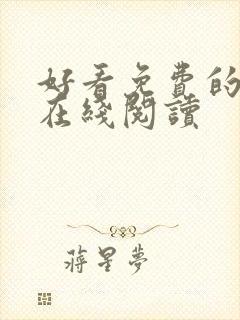 好看免费的
在綫閱讀
蔣星夢